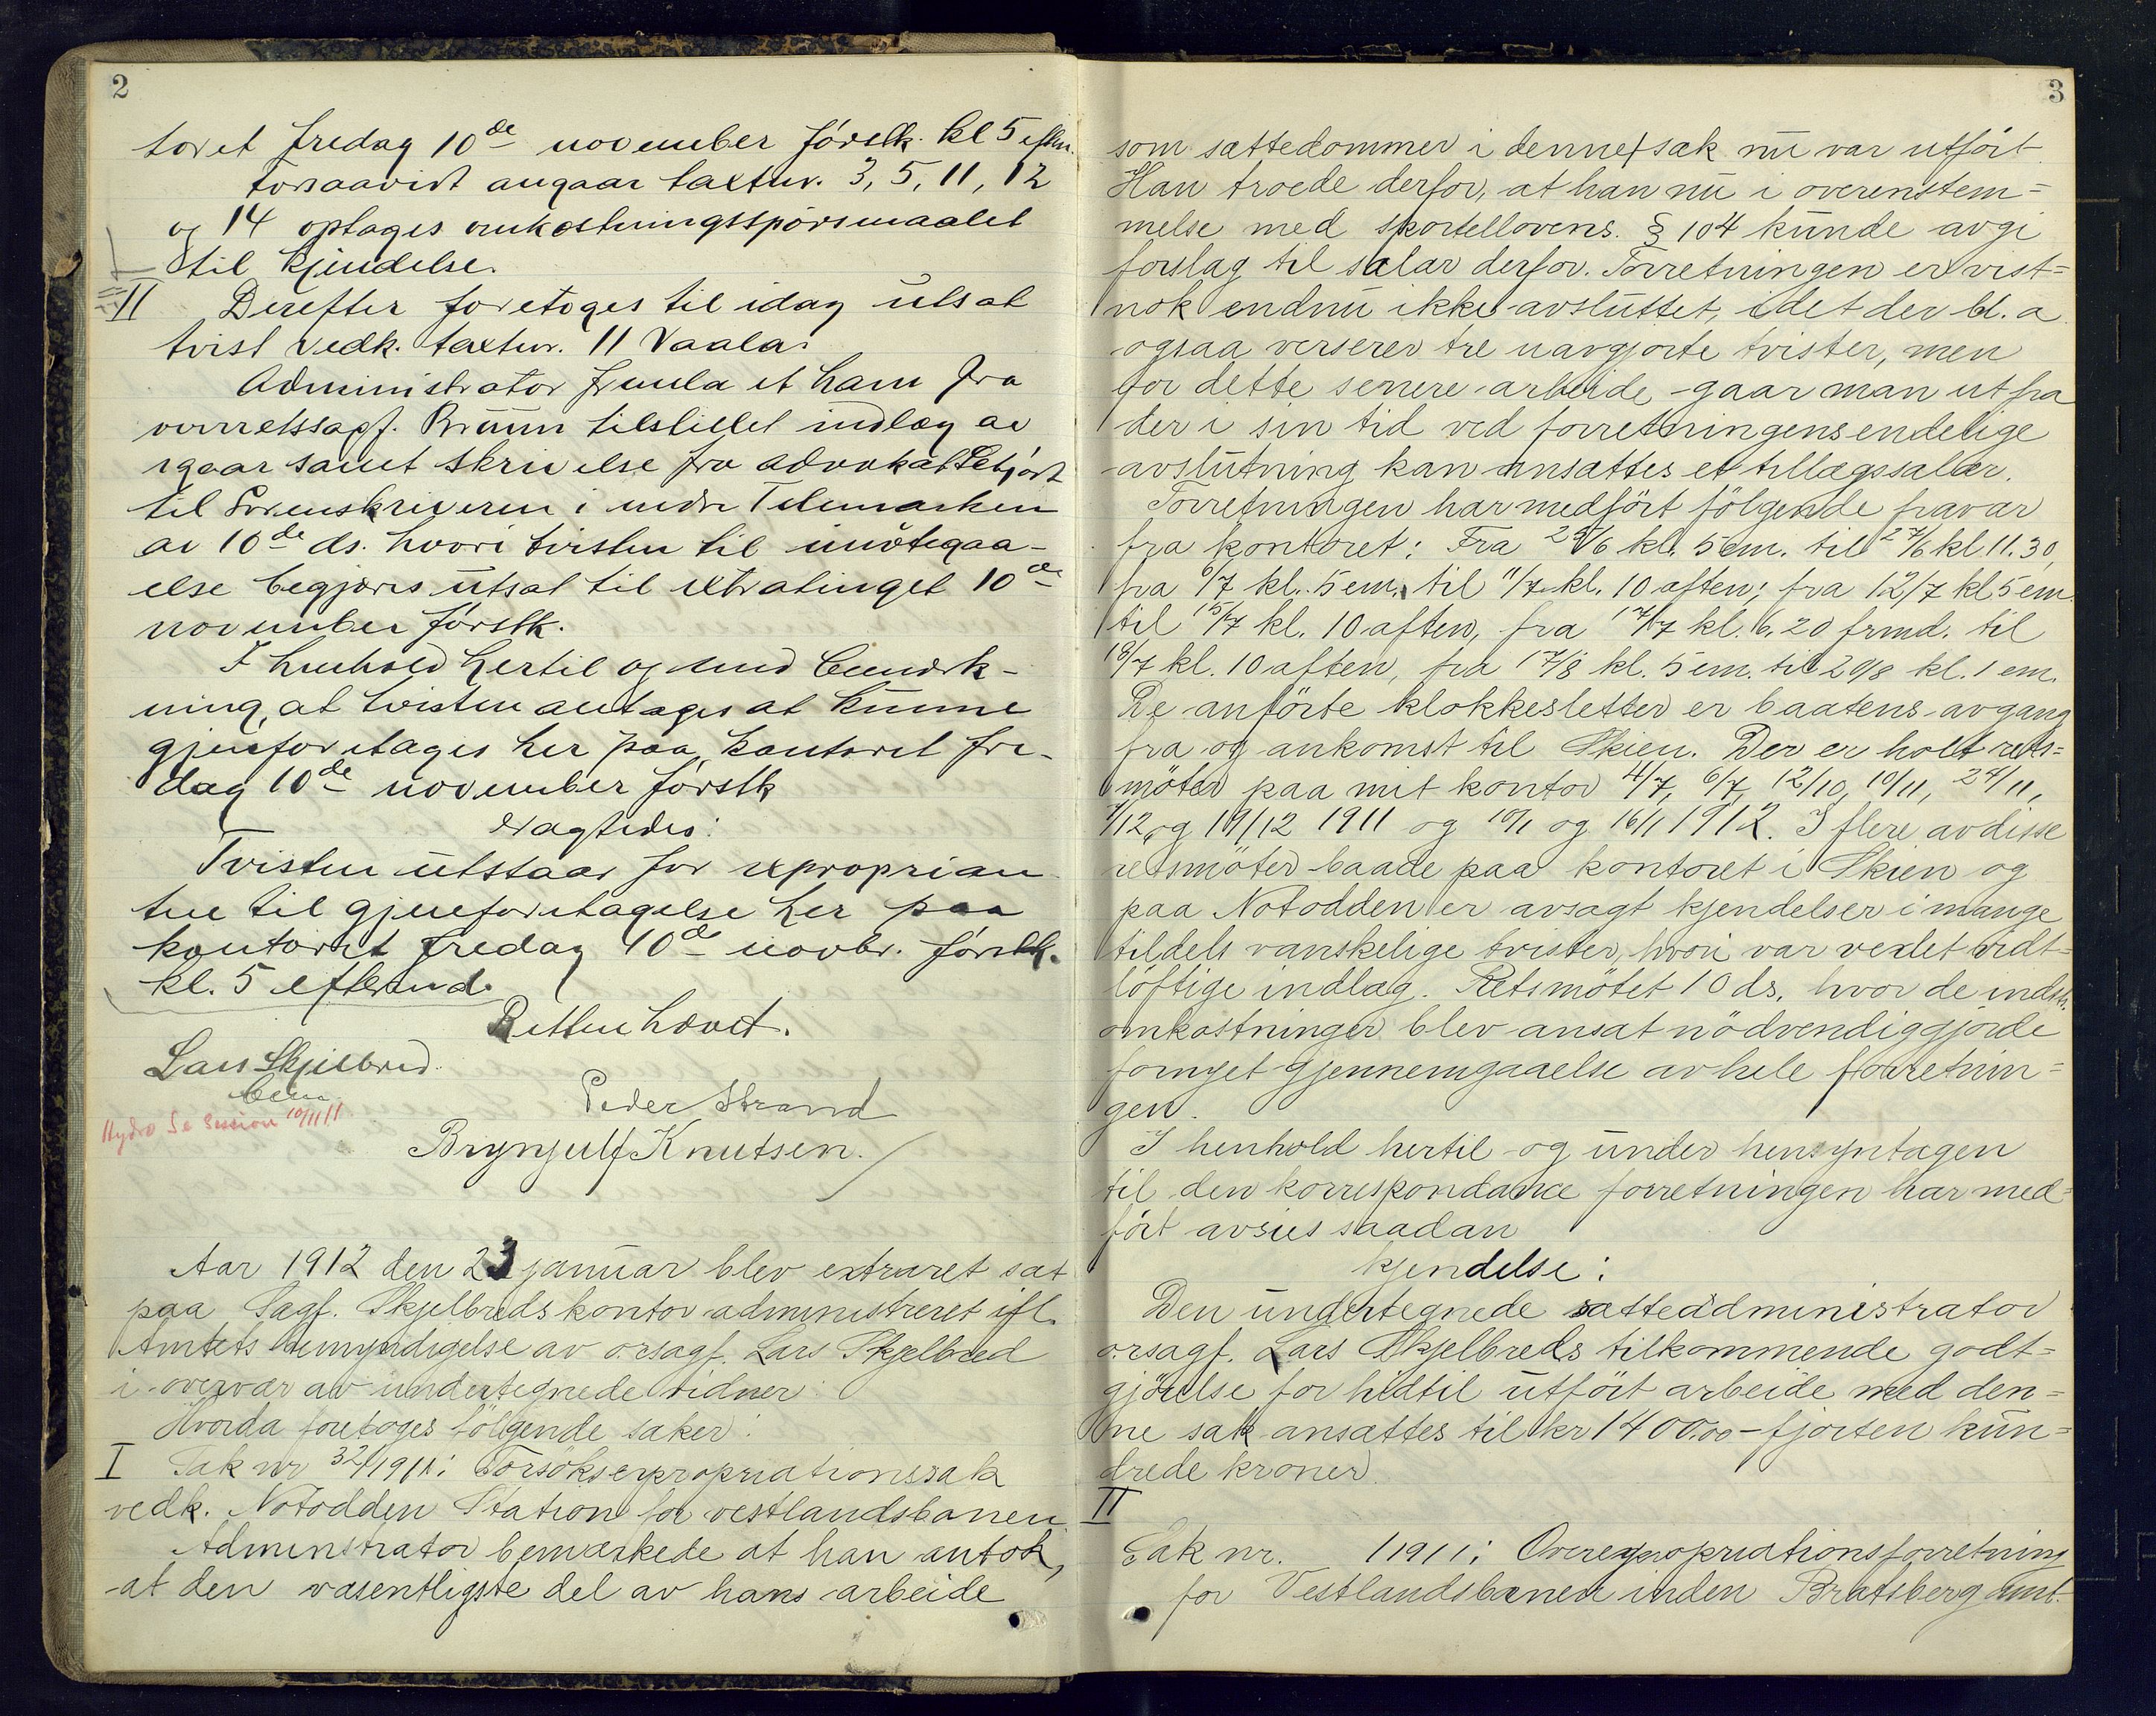 2
toret fredag 10de november förstk. kl 5 eftm.
Forsaavidt angaar taxtnr. 3, 5, 11, 12
og 14 optages omkostningsspörsmaalet
til kjendelse.
II Derefter foretoges til idag utsat
tvist vedk. taxtnr. 11 Vaala.
Administrator fremla et ham fra
overretssagf. Bruun tilstillet indlæg av
igaar samt skrivelse fra advokat
til Sorenskriveren i nedre Telemarken
av 10de ds. hvori tvisten til imötegaa-
else begjæres utsat til extratinget 10de
november förstk.
I henhold hertil og med bemerk-
ning, at tvisten antages at kunne
gjenforetages her paa kontoret fre-
dag 10de november förstk
vagtedes:
Tvisten utstaar for exproprian-
tne til gjenforetagelse her paa
kontoret fredag 10de novbr. förstk.
kl. 5 eftermd.
Retten hævet.
Lars Skjelbred
bem.
Peder Strand
Hydro Se Session 10/11 11
Brynjulf Knutsen.
Aar 1912 den 23 januar blev extraret sat
paa Sagf. Skjelbreds kontor administreret ifl.
Amtets bemyndigelse av o.r.sagf. Lars Skjelbred
i overvær av undertegnede vidner:
Hvorda foretoges fölgende saker:
I Sak nr 32/1911: Forsöksexpropriationssak
vedk. Notodden Station for vestlandsbanen.
Administrator bemærkede at han antok,
at den væsentligste del av hans arbeide
3
som sættedommer i denne sak nu var utfört.
Han troede derfor, at han nu i overenstem=
melse med sportellovens. § 104 kunde avgi
forslag til salær derfor. Forretningen er vist=
nok endnu ikke avsluttet, idet der bl. a.
ogsaa verserer tre uavgjorte tvister, men
for dette senere arbeide gaar man ut fra
der i sin tid ved forretningens endelige
avslutning kan ansættes et tillægssalær.
Forretningen har medfört fölgende fravær
fra kontoret: Fra 25/6 kl. 5 em. til 27/6 kl 11.30,
fra 6/7 kl. 5 em. til 11/7 kl. 10 aften; fra 12/7 kl 5 em.
til 15/7 kl. 10 aften, fra 17/7 kl. 6.20 frmd. til
18/7 kl. 10 aften, fra 17/8 kl. 5 em. til 20/8 kl. 1 em.
De anförte klokkesletter er baatens avgang
fra og ankomst til Skien. Der er holdt rets=
möter paa mit kontor 4/7, 6/7, 12/10, 10/11, 24/11,
7/12, og 19/12 1911 og 10/1 og 16/1 1912. I flere av disse
retsmöter baade paa kontoret i Skien og
paa Notodden er avsagt kjendelser i mange
tildels vanskelige tvister, hvori var vexlet vidt=
löftige indlæg. Retsmötet 10 ds. hvor de indst.
omkostninger blev ansat nödvendiggjorde
fornyet gjennemgaaelse av hele forretnin=
gen.
I henhold hertil og under hensyntagen
til den korrespondance forretningen har med=
fört avsies saadan
kjendelse:
Den undertegnede sætteadministrator
o.r.sagf. Lars Skjelbreds tilkommende godt=
gjörelse for hidtil utfört arbeide med den=
ne sak ansættes til kr 1400.00 - fjorten hun=
drede kroner.
II
Sak nr. /1911: Overexpropriationsforretning
for Vestlandsbanen inden Bratsberg amt.